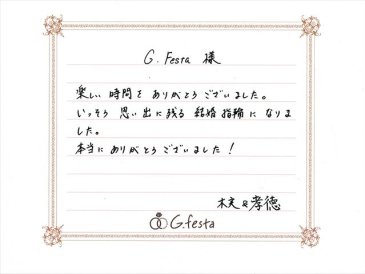 G.Festa 様
楽しい時間をありがとうございました。
いっそう思い出に残る結婚指輪になりま
した。
本当にありがとうございました!
& 孝徳
G.festa